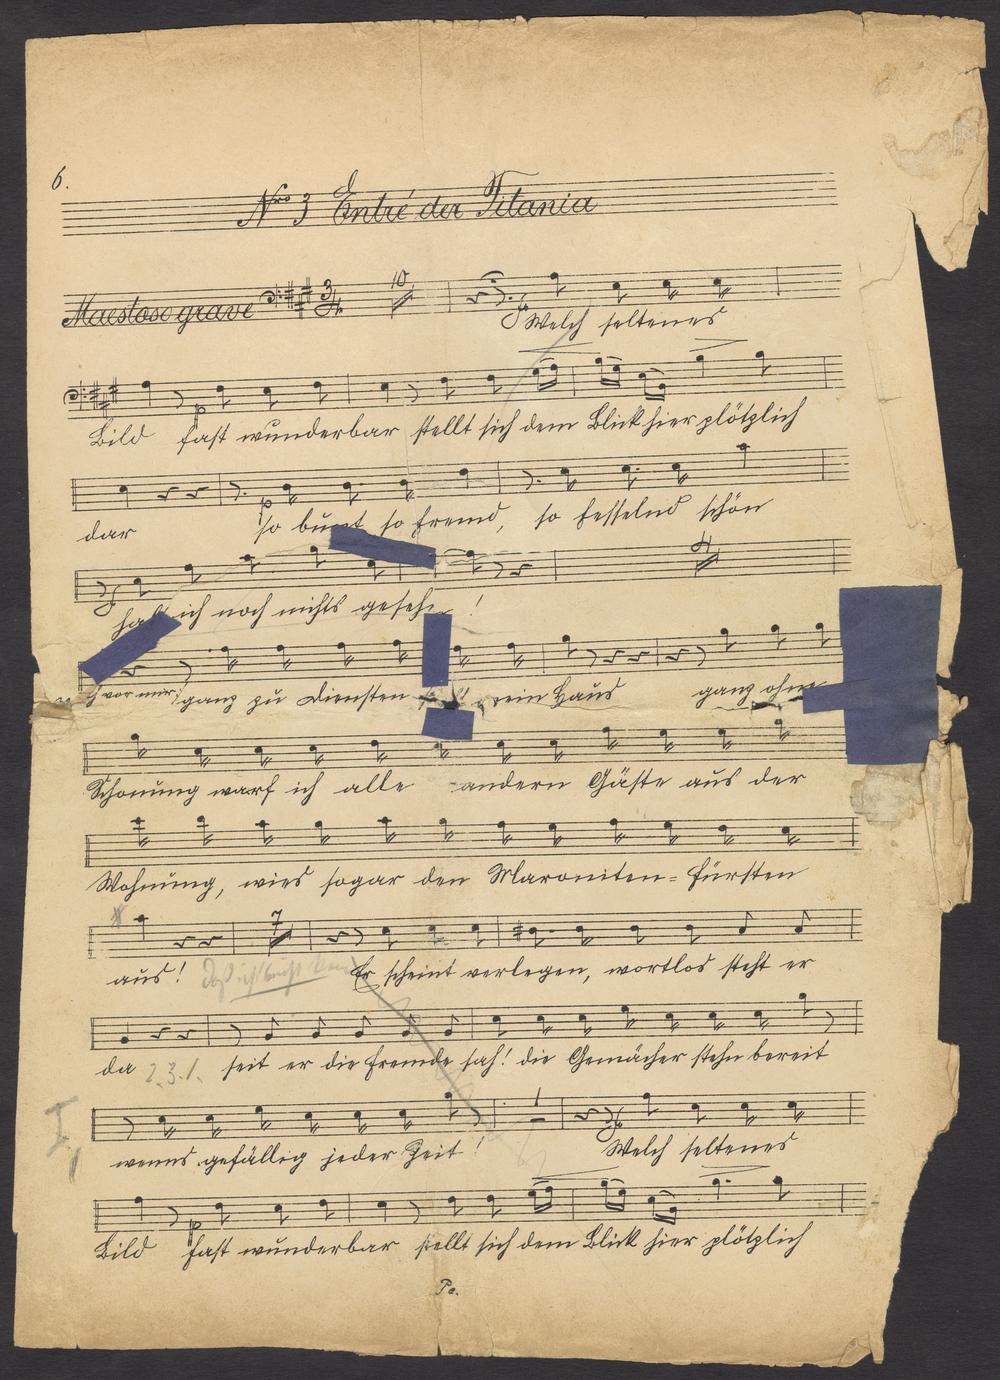 6.
Nro 3 Entré der Titania
Maestoso grave
10
Welch seltenes
Bild fast wunderbar stellt sich dem Blick hier plötzlich
dar so bunt so fremd, so fesselnd schön
4
hab ich noch nichts gesehn !
vor mir, ganz zu Diensten mein Haus ganz ohne
Schonung warf ich alle andern Gäste aus der
Wohnung, wies sogar den Maroniten=fürsten
7
aus! Er scheint verlegen, wortlos steht er
da 2.3.1. seit er die Fremde sah! die Gemächer stehn bereit
I
wenns gefällig jeder Zeit !
Welch seltenes
Bild fast wunderbar stellt sich dem Blick hier plötzlich